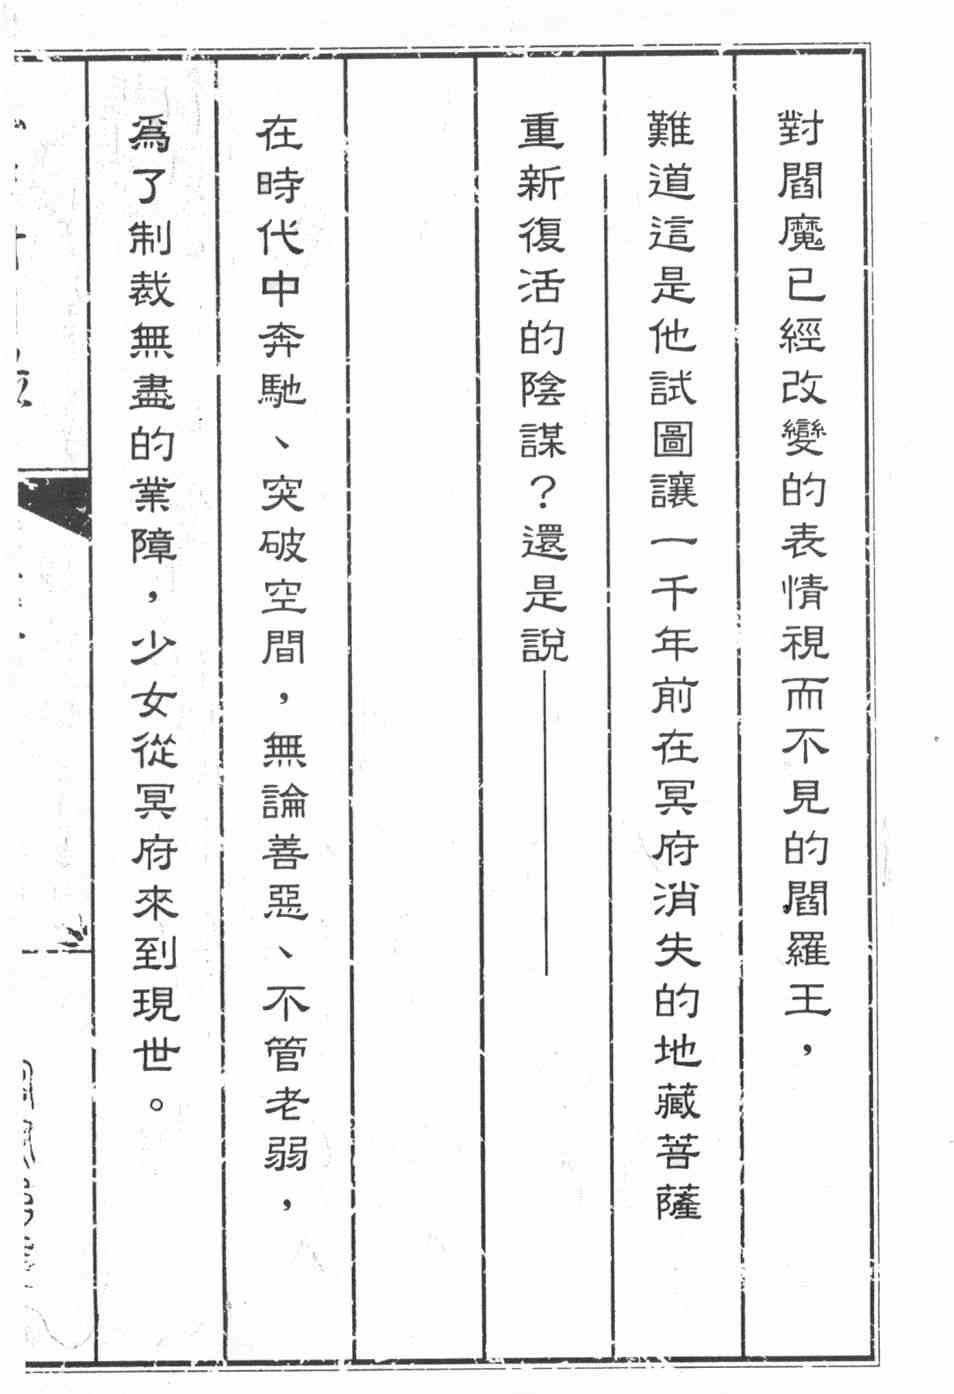 對閻魔已經改變的表情視而不見的閻羅王，
難道這是他試圖讓一千年前在冥府消失的地藏菩薩
重新復活的陰謀？還是說——
在時代中奔馳、突破空間，無論善惡、不管老弱，
為了制裁無盡的業障，少女從冥府來到現世。